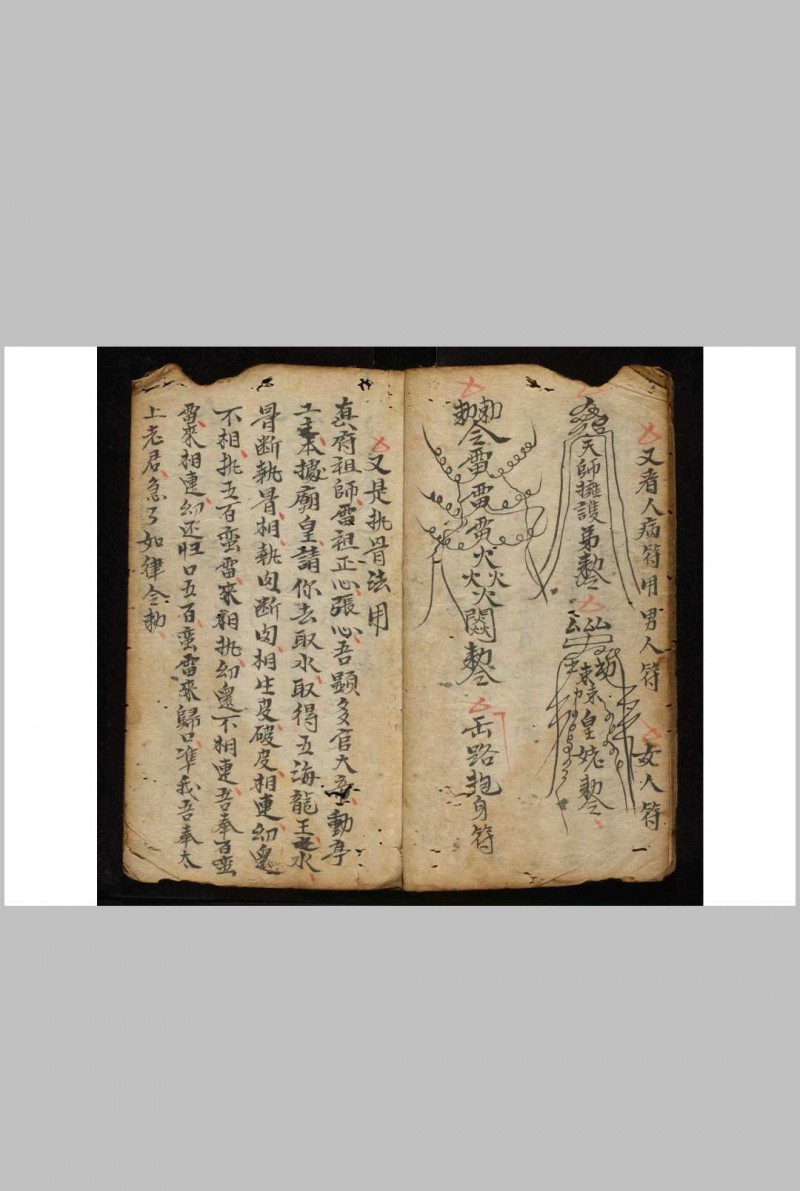 又者人病符用男人符 女人符
天師擁護弟勅令
皇姥勅令
勅勅令雷雷雷火火火火勅令
出路抱身符
又是执骨法用
真府祖師雷祖正心張心吾顯多官大 動亭
土主本摅廟皇請你去取水取得五海龍王之水
骨断执骨相执肉断肉相生皮破皮相連幼邊
不相执五百蛮雷來相执幼邊不相連吾奉百蛮
雷來相連幼还归口五百蛮雷來歸口準我吾奉太
上老君急了如律令勅